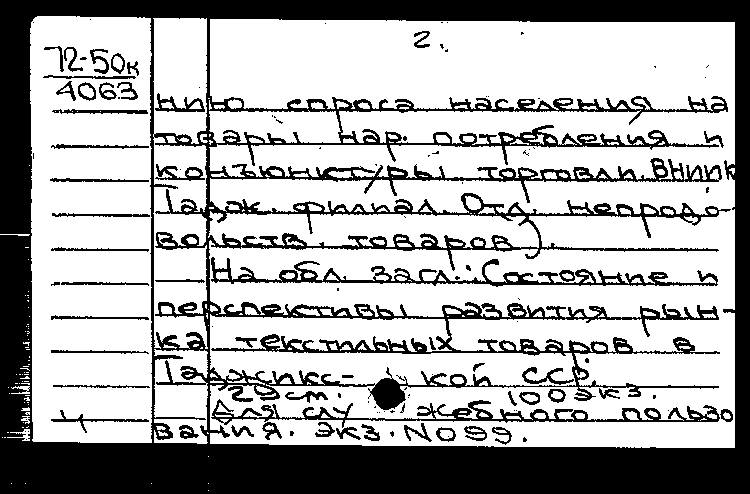 2.
72-50к
4063
нию спроса населения на
товары нар. потребления и
конъюнктуры торговли. ВНИИК
Тадж. филиал. Отд. непродо-
вольств. товаров).
На обл. загл.: Состояние и
перспективы развития рын-
ка текстильных товаров в
Таджикс- кой ССР.
29см. 100экз.
Для слу жебного пользо
вания. Экз. №099.
ч